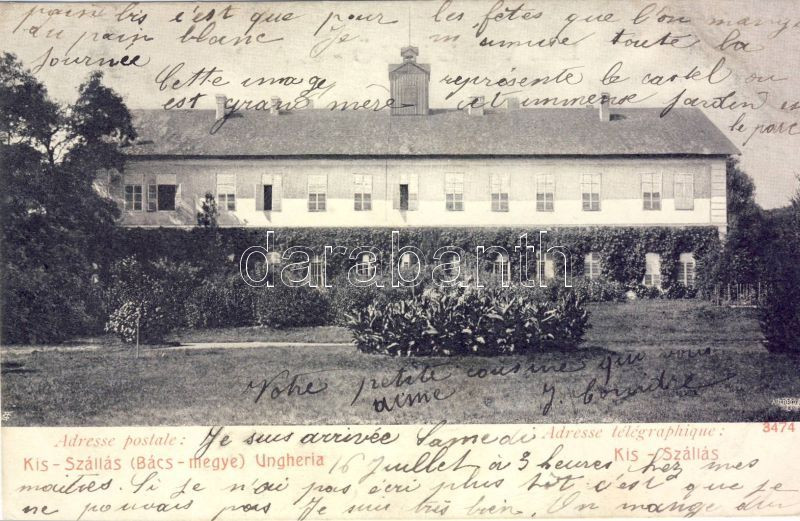 pain bis c'est que pour les fêtes que l'on mange
du pain blanc Je m'amuse toute la
journée
Cette image représente le castel ou
est grand mère et immense jardin est
le parc
darabanth.com
Votre petite cousine qui vous
aime J.
Adresse postale: Adresse télégraphique: 3474
Kis-Szállás (Bács-megye) Ungheria Kis-Szállás
Je suis arrivée Samedi
16 Juillet à 3 heures chez mes
maitres. Si je n'ai pas écri plus tôt c'est que je
ne pouvais pas Je suis très bien. On mange du